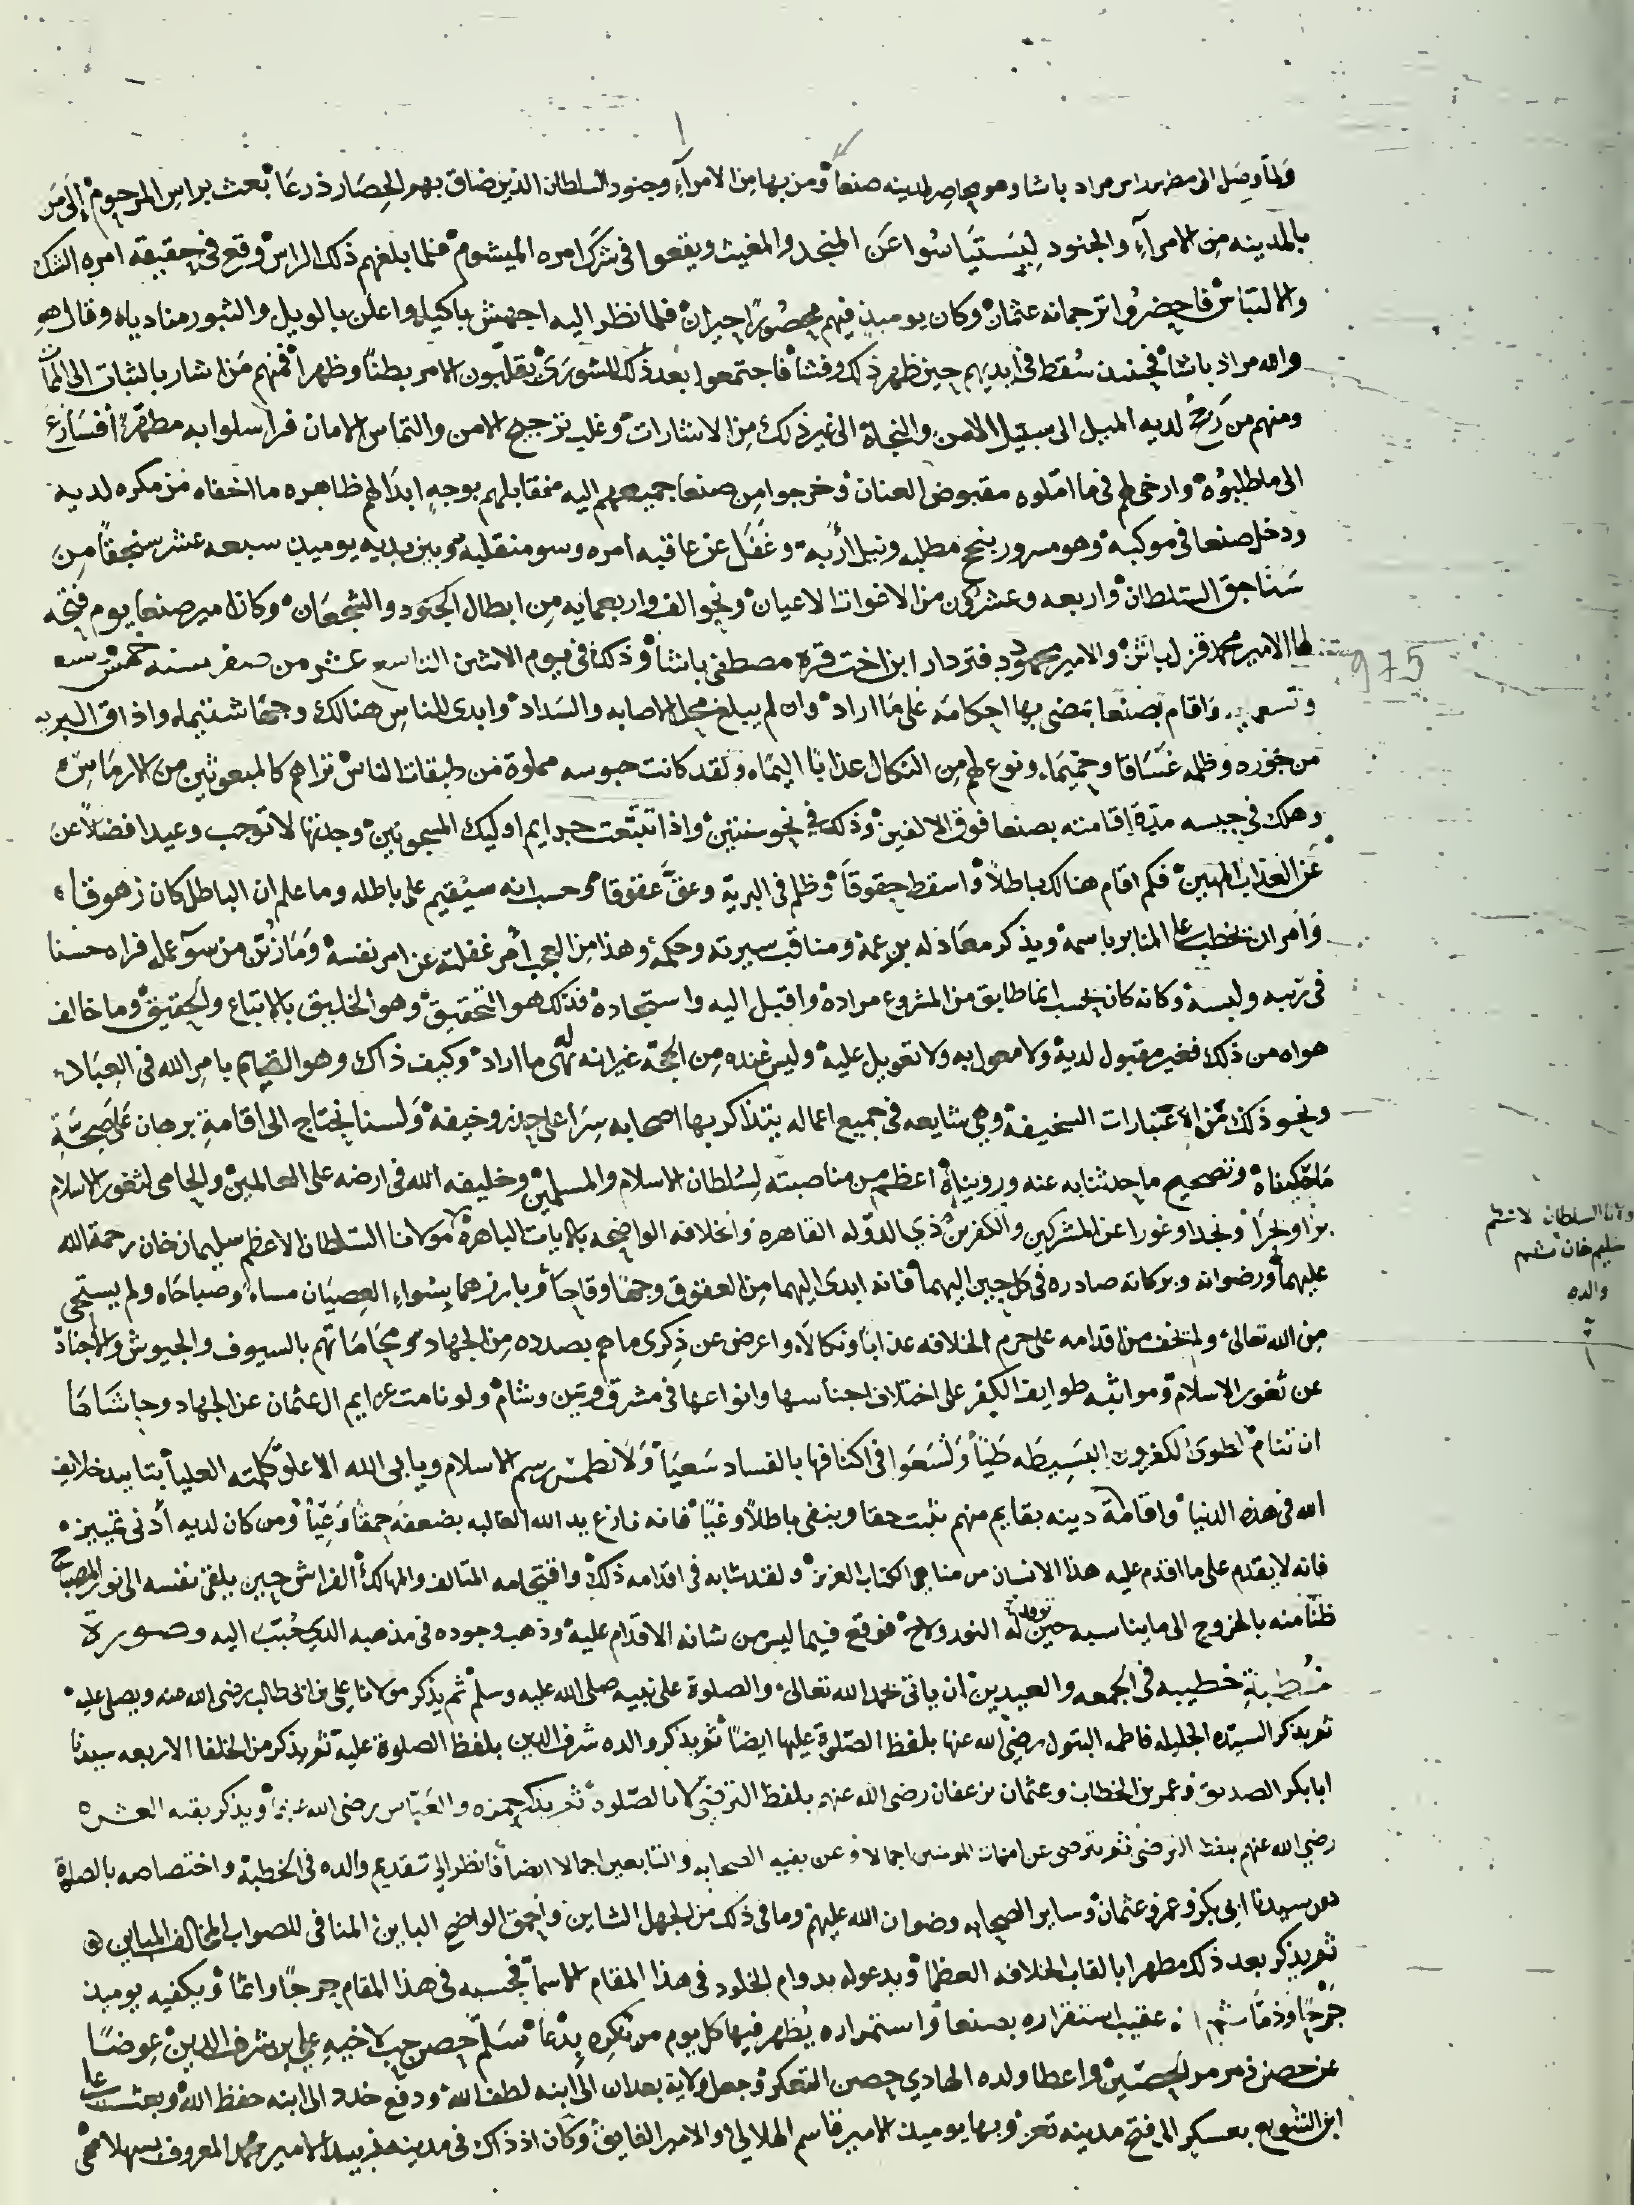 ولما وصل الى مطهر راس مراد باشا وهو محاصر لمدينه صنعا ومن بها من الامرآء وجنود السلطان الذين ضاق بهم الحصار ذرعا بعث براس المرحوم الى من
بالمدينه من الامرآء والجنود ليستياسوا عن المنجد والمغيث ويقعوا في شرك امره الميشوم فلما بلغهم ذلك الراس وقع في حقيقة امره الشك
والالتباس فاحضروا ترجمانه عثمان وكان يوميذ فيهم محصورا حيران فلما نظر اليه اجهش باكيا واعلن بالويل والثبور مناديا وقال هو
والله مراد باشا فحينئذ سقط في ايديهم حين ظهر ذلك وفشا فاجتمعوا بعد ذلك للشورى يقلبون الامر بطنا وظهرا فمنهم من اشار بالثبات الى الممات
ومنهم من رجح لديه الميل الى سبيل الامن والنجاة الى غير ذلك من الاشارات وغلب ترجيح الامن والتماس الامان فراسلوا به مطهر فسارع
الى ما طلبوه وارخى لهم في ما املوه مقبوض العنان وخرجوا من صنعا جميعهم اليه فقابلهم بوجه ابدا لهم ظاهره ما اخفاه من مكره لديه
ودخل صنعا في موكبه وهو مسرور بنجح مطلبه ونيل اربه وغفل عن عاقبه امره وسو منقلبه وبين يديه يوميذ سبعه عشر سنجقا من
سناجق السلطان واربعه وعشرون من الاغوات الاعيان ونحو الف واربعمايه من ابطال الجنود والشجعان وكان امير صنعا يوم فتحه
لها الامير محمد قزل باش والامير محمود دفتردار ابن اخت قره مصطفى باشا وذلك في يوم الاثنين التاسع عشر من صفر سنه خمس سبعين
وتسعمايه واقام بصنعا تمضى بها احكامه على ما اراد وان لم يبلغ محل الاصابه والسداد وابدى للناس هنالك وجها شتيما واذاق البريه
من جوره وظلمه غساقا وحميما ونوع لهم من النكال عذابا اليما ولقد كانت حبوسه مملوة من طبقات الناس تراهم كالمبعوثين من الارماس
وهلك في حبسه مدة اقامته بصنعا فوق الالفين وذلك في نحو سنتين واذا تتبعت جرايم اوليك المسجونين وجدتها لا توجب وعيدا فضلا عن
عن العذاب المهين فكم اقام هنالك باطلا واسقط حقوقا وظلم في البرية وعق عقوقا وحسب انه سيقيم على باطله وما علم ان الباطل كان زهوقا
وامر ان يخطب على المنابر باسمه ويذكر معادله بزعمه ومناقب سيرته وحكمه وهذا من العجب أمر غفلته عن امر نفسه وما زين من سوء عمله فراه حسنا
في ريبه ولبسه وكانه كان يحسب انما طابق من المشروع مراده واقبل اليه واستجاده فذلك هو التحقيق وهو الخليق بالاتباع والحقيق وما خالف
هواه من ذلك فغير مقبول لديه ولا معول به ولا تعويل عليه وليس عنده من الحجة غير انه ما اراد وكيف ذاك وهو القايم بامر الله في العباد
ونحو ذلك من الاعتبارات السخيفه وهي شايعه في جميع اعماله يتذاكر بها اصحابه سرا على حذر وخيفه ولسنا نحتاج الى اقامة برهان على صحة
ما حكيناه وتصحيح ما حدثنا به عنه ورويناه اعظم من مناصبته لسلطان الاسلام والمسلمين وخليفه الله في ارضه على العالمين والحامى لثغور الاسلام
برا وبحرا ونجدا وغورا عن المشركين والكفرين ذي الدوله القاهره والخلافه الواضحه بالايات الباهره مولانا السلطان الاعظم سليمان خان رحمة الله
عليهما ورضوانه وبركاته صادره في كل حين اليهما فانه ابدى اليهما من العقوق وجها وقاحا وبارزهما بسواء العصيان مساء وصباحا ولم يستحي
من الله تعالى ولم يخف من اقدامه على حرم الخلافه عذابا ونكالا واعرض عن ذكرى ما هم بصدده من الجهاد ومحاماتهم بالسيوف والجيوش والاجناد
عن ثغور الاسلام ومواثبه طوايف الكفر على اختلاف اجناسها وانواعها في مشرق ويمن وشام ولو نامت عزايم ال عثمان عن الجهاد وحاشاها
ان تنام لطوى الكفرون البسيطه طيا ولسعوا في اكنافها بالفساد سعيا ولانطمس رسم الاسلام ويابى الله الا علو كلمته العليا بتاييد خلايف
الله في هذه الدنيا واقامة دينه بقايم منهم يثبت حقا وينفي باطلا وغيا فانه نازع يد الله الغالبه بضعفه حمقا وعيا ومن كان لديه أدنى تمييز
فانه لا يقدم على ما اقدم عليه هذا الانسان من مناهي الكتاب العزيز ولقد شابه في اقدامه ذلك واقتحامه المتالف والمهالك الفراش حين يلقى نفسه الى نور المصباح
ظنا منه بالخروج الى ما يناسبه حين توقد له النور ولاح فوقع فيما ليس من شانه الاقدام عليه وذهب وجوده في مذهبه الذي حبب اليه وصورة
خطبة خطيبه في الجمعه والعيدين ان ياتي بحمد الله تعالى والصلوة على نبيه صلى الله عليه وسلم ثم يذكر مولانا علي بن ابي طالب رضى الله عنه ويصلى عليه
ثم يذكر السيده الجليله فاطمه البتول رضى الله عنها بلفظ الصلوة عليها ايضا ثم يذكر والده شرف الدين بلفظ الصلوة عليه ثم يذكر من الخلفا الاربعه سيدنا
ابا بكر الصديق وعمر بن الخطاب وعثمان بن عفان رضى الله عنهم بلفظ الترضى لا بالصلوة ثم يذكر حمزه والعباس رضى الله عنهما ويذكر بقيه العشره
رضى الله عنهم بلفظ الترضى ثم يترضى عن امهات المومنين اجمالا وعن بقيه الصحابه والتابعين اجمالا ايضا فانظر الى تقديم والده في الخطبة واختصاصه بالصلاة
دون سيدنا ابي بكر وعمر وعثمان وساير الصحابه رضوان الله عليهم وما في ذلك من الجهل الشاين والحمق الواضح الباين المنافي للصواب المخالف المباين
ثم يذكر بعد ذلك مطهرا بالقاب الخلافه العظما ويدعو له بدوام الخلود في هذا المقام الاسما فحسبه في هذا المقام حرجا واثما ويكفيه يوميذ
جرحا وذما ثم انه عقيب استقراره بصنعا واستمراره يظهر فيها كل يوم من نكره بدعا تسلم حصن حب لاخيه علي بن شرف الدين عوضا
عن حصن ذمرمر الحصين واعطا ولده الهادي حصن التعكر وجعل ولاية بعدان الى ابنه لطف الله ودفع خدد الى ابنه حفظ الله وبعث على
ابن الشويع بعسكر الى فتح مدينه تعز وبها يوميذ الامير قاسم الهلالي والامير الفايق وكان اذ ذاك في مدينه زبيد الامير محمد المعروف
975
مولانا السلطان الاعظم
سليم خان
والده